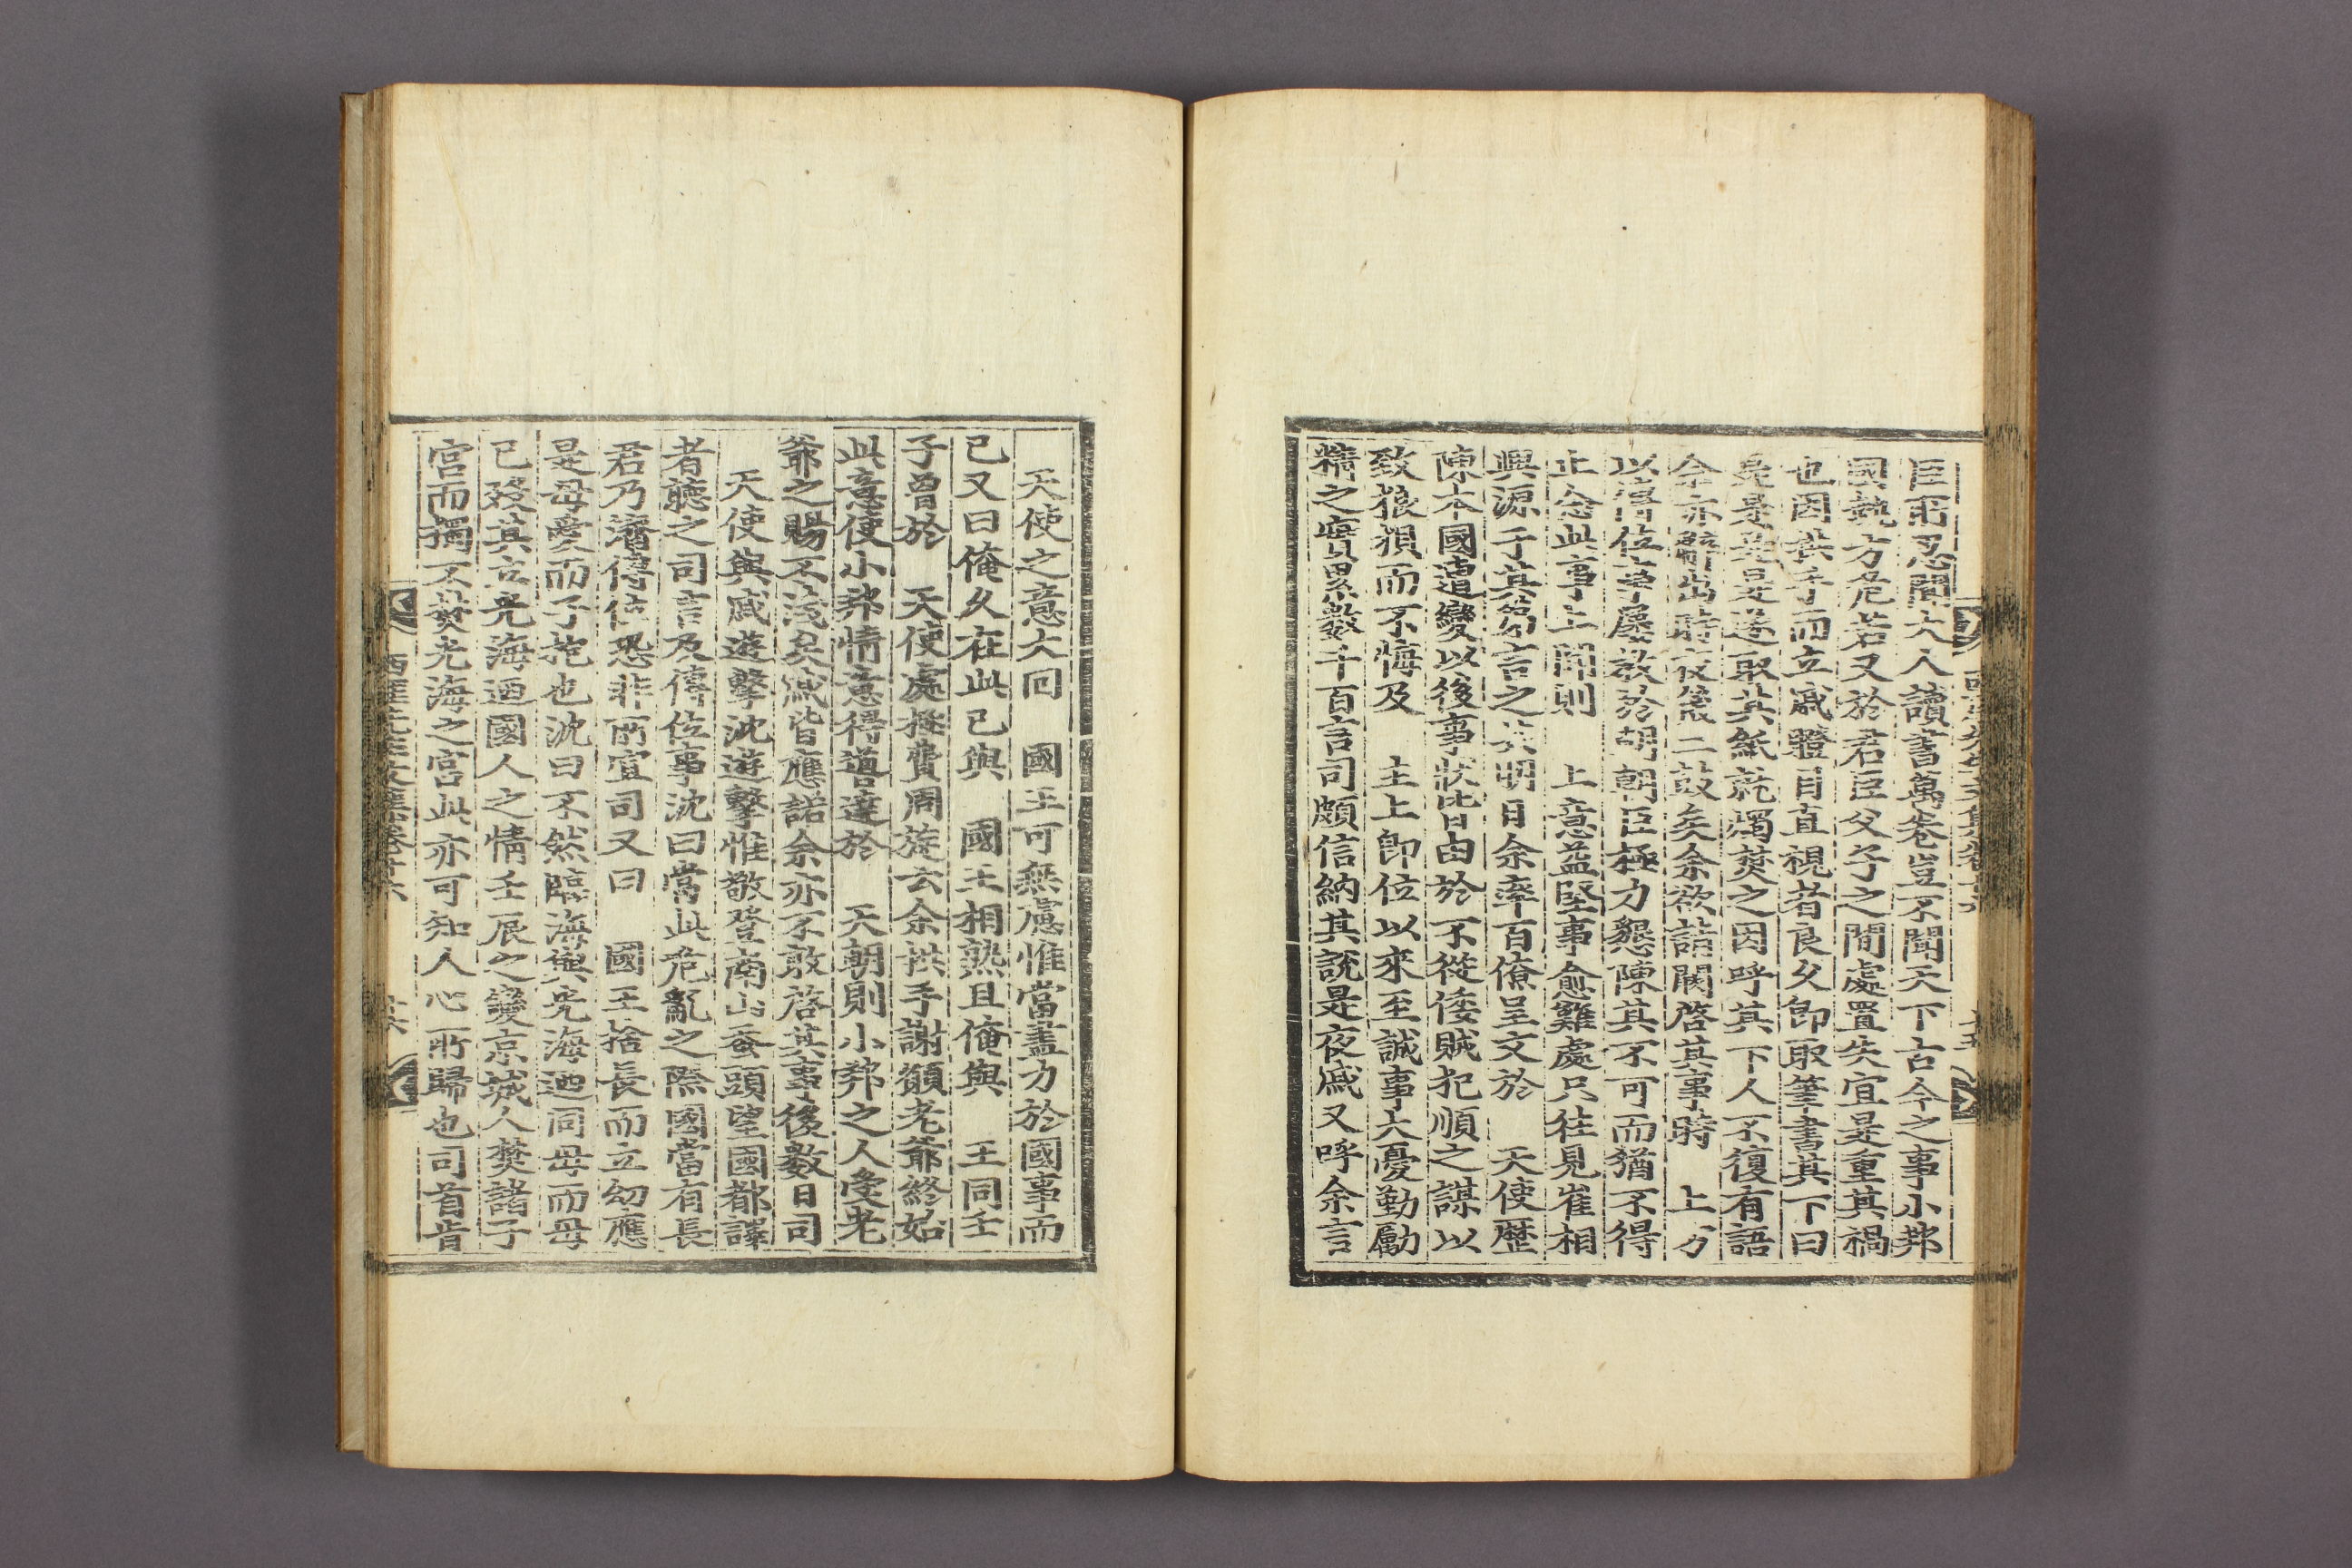 臣所忍聞大人讀書萬卷豈不聞天下古今之事小邦
國勢方危若又於君臣父子之間處置失宜是重其禍
也因拱手而立戚瞪目直視者良久卽取筆書其下曰
是是是是遂取其紙就燭焚之因呼其下人不復有語
余亦辭出時夜幾二鼓矣余欲詣闕啓其事時　上方
以傳位事屢敎於朝朝臣極力懇陳其不可而猶不得
止念此事上聞則　上意益堅事愈難處只往見崔相
興源于其第言之  明日余率百僚呈文於　天使歷
陳本國遭變以後事狀皆由於不從倭賊犯順之謀以
致狼狽而不悔及　主上卽位以來至誠事大憂勤勵
精之實累數千百言司頗信納其說是夜戚又呼余言
天使之意大回　國王可無慮惟當盡力於國事而
已又曰俺久在此已與　國王相熟且俺與　王同壬
子曾於　天使處極費周旋云余拱手謝願老爺終始
此意使小邦情意得導達於　天朝則小邦之人受老
爺之賜不淺矣戚皆應諾余亦不敢啓其事後數日司
天使與戚遊擊沈遊擊惟敬登南山蚕頭望國都譯
者聽之司言及傳位事沈曰當此危亂之際國當有長
君乃濟傳位恐非所宜司又曰　國王捨長而立幼應
是母愛而子抱也沈曰不然臨海與光海迺同母而母
已歿其言光海迺國人之情壬辰之變京城人焚諸子
宮而獨不焚光海之宮此亦可知人心所歸也司首肯
西厓先生文集卷十六